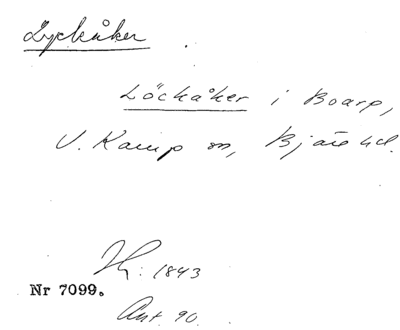 Lyckåker
Löckåker i Boarp,
V. Karup sn, Bjäre hd.
Jh: 1843
Nr 7099.
Ant. 90.